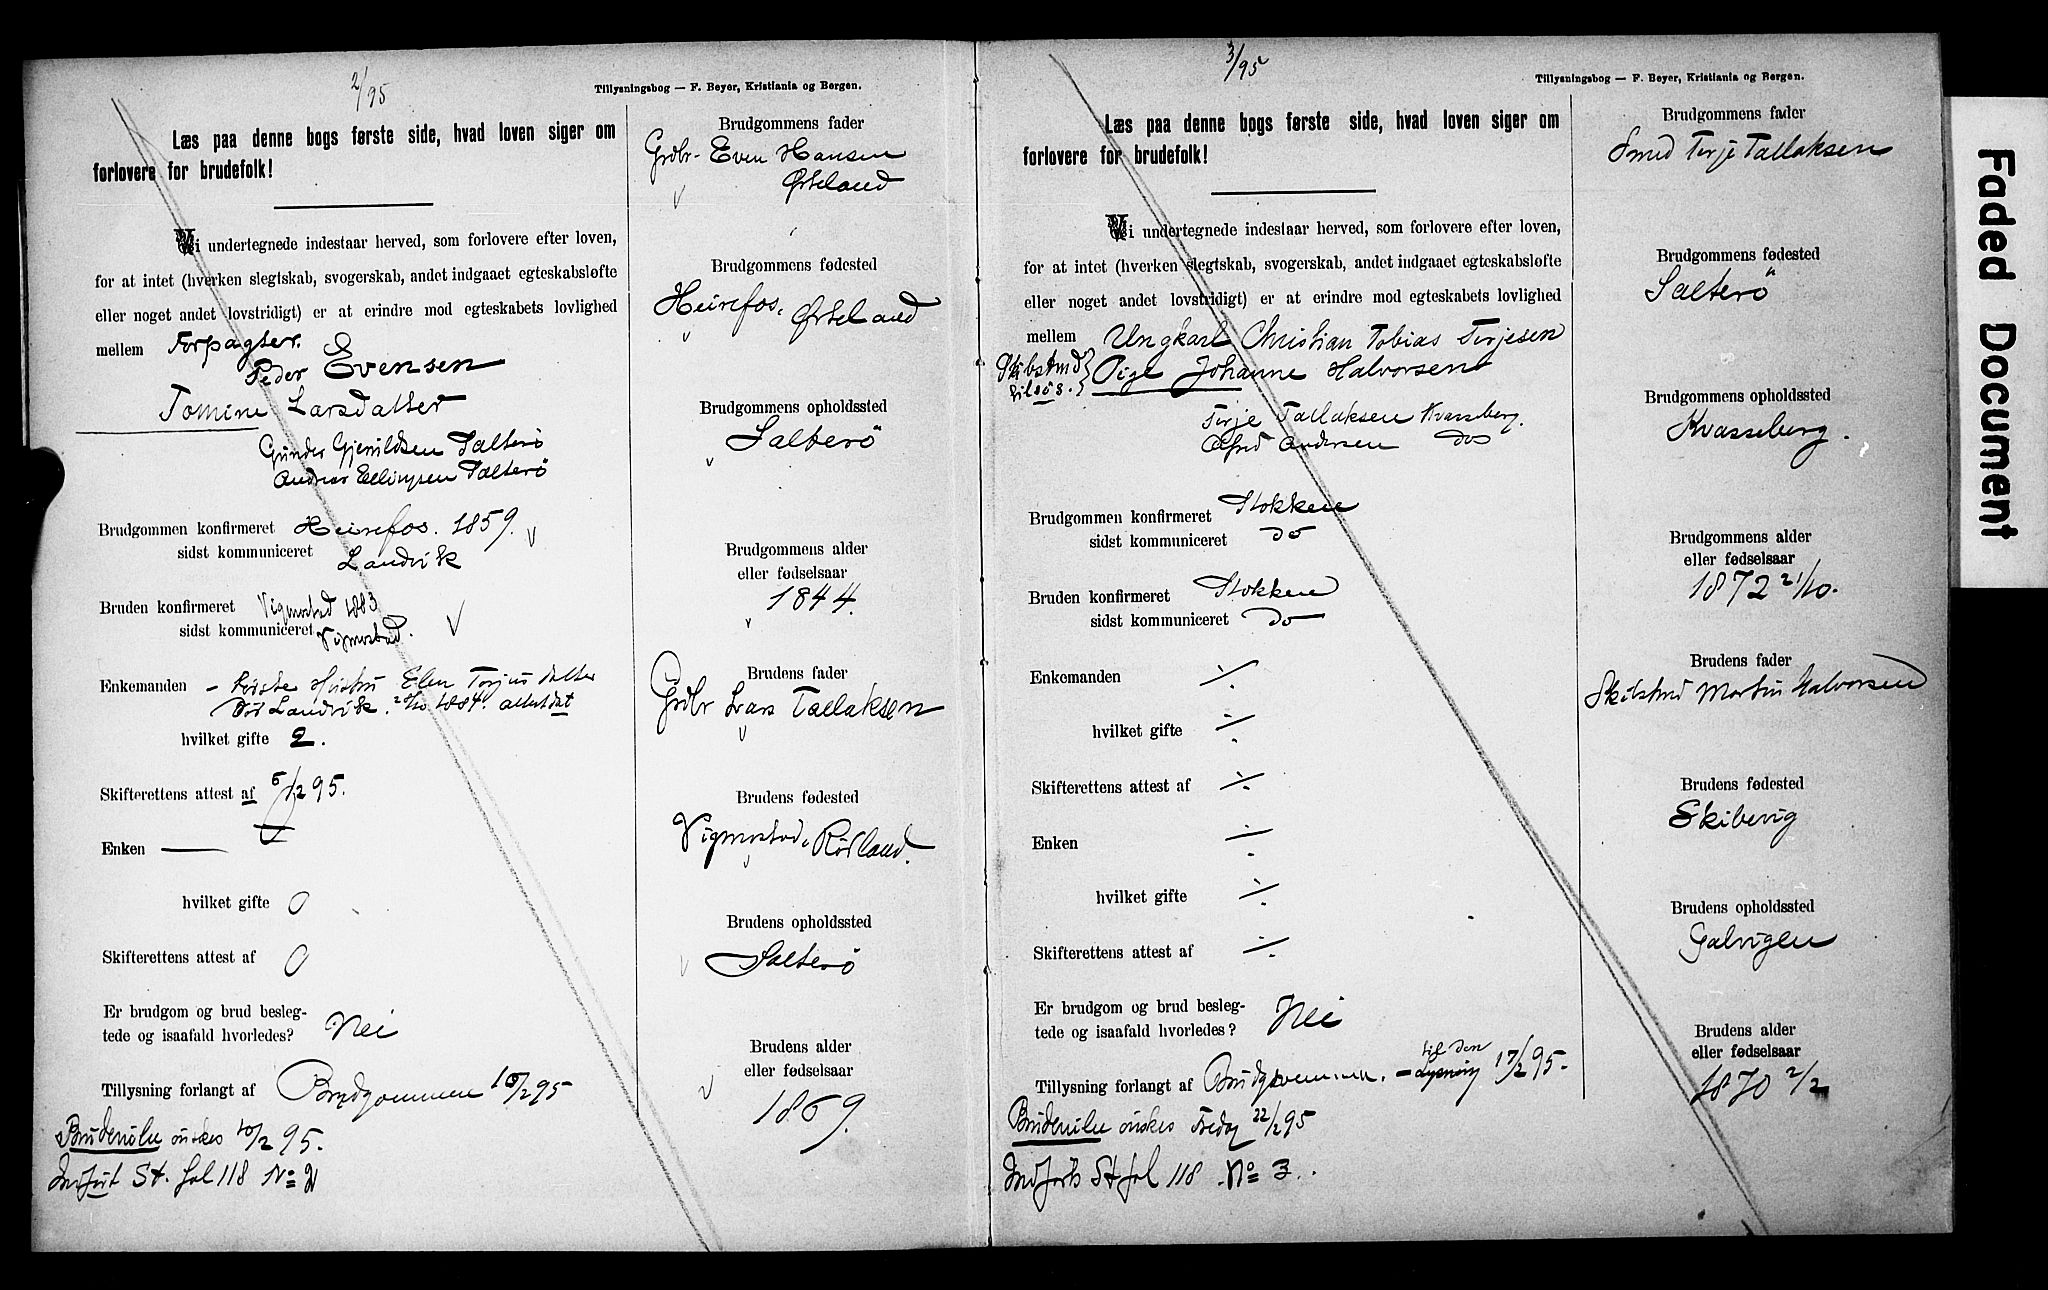 2/95
Tillysningsbog — F. Beyer, Kristiania og Bergen.
Læs paa denne bogs første side, hvad loven siger om
forlovere for brudefolk!
Vi undertegnede indestaar herved, som forlovere efter loven,
for at intet (hverken slegtskab, svogerskab, andet indgaaet egteskabsløfte
eller noget andet lovstridigt) er at erindre mod egteskabets lovlighed
mellem Forpagter.
Peder Evensen
Tomine Larsdatter
Gunder Gjeruldsen Salterö
Andreas Ellingsen Salterö
Brudgommen konfirmeret Heirefos. 1859.
sidst kommuniceret Landvik
Bruden konfirmeret Vigmostad 1883
sidst kommuniceret Vigmostad.
Enkemanden – første Hustru Elen Torjusdatter
Död Landvik. 1884. attest dat
hvilket gifte 2.
Skifterettens attest af 5/2 95.
Enken —
hvilket gifte 0
Skifterettens attest af 0
Er brudgom og brud besleg-
tede og isaafald hvorledes? Nei
Tillysning forlangt af Brudgommen 10/2 95
Brudevilse önskes 10/2 95.
Indfört St. fol 118 No 2
Brudgommens fader
Grdbr. Even Hansen
Örteland
Brudgommens fødested
Heirefos, Örteland
Brudgommens opholdssted
Salterö
Brudgommens alder
eller fødselsaar
1844.
Brudens fader
Grdbr Lars Tallaksen
Brudens fødested
Vigmostad, Rödland.
Brudens opholdssted
Salterö
Brudens alder
eller fødselsaar
1869.
3/95
Tillysningsbog — F. Beyer, Kristiania og Bergen.
Læs paa denne bogs første side, hvad loven siger om
forlovere for brudefolk!
Vi undertegnede indestaar herved, som forlovere efter loven,
for at intet (hverken slegtskab, svogerskab, andet indgaaet egteskabsløfte
eller noget andet lovstridigt) er at erindre mod egteskabets lovlighed
mellem Ungkarl Christian Tobias Terjesen
Pige Johanne Halvorsen
Terje Tallaksen Kvasseberg.
Alfred Andersen do
Brudgommen konfirmeret Stokken
sidst kommuniceret do
Bruden konfirmeret Stokken
sidst kommuniceret do
Enkemanden ./.
hvilket gifte ./.
Skifterettens attest af ./.
Enken ./.
hvilket gifte ./.
Skifterettens attest af ./.
Er brudgom og brud besleg-
tede og isaafald hvorledes? Nei
Tillysning forlangt af Brudgommen. – til den Lysning 17/2 95.
Brudevilse önskes Fredag 22/2 95
Indförts St fol 118 No 3.
Brudgommens fader
Smed Terje Tallaksen
Brudgommens fødested
Salterö
Brudgommens opholdssted
Kvasseberg.
Brudgommens alder
eller fødselsaar
1872 21/10.
Brudens fader
Skibstmd Martin Halvorsen
Brudens fødested
Skibevig
Brudens opholdssted
Galvigen
Brudens alder
eller fødselsaar
1870 2/2
Faded Document